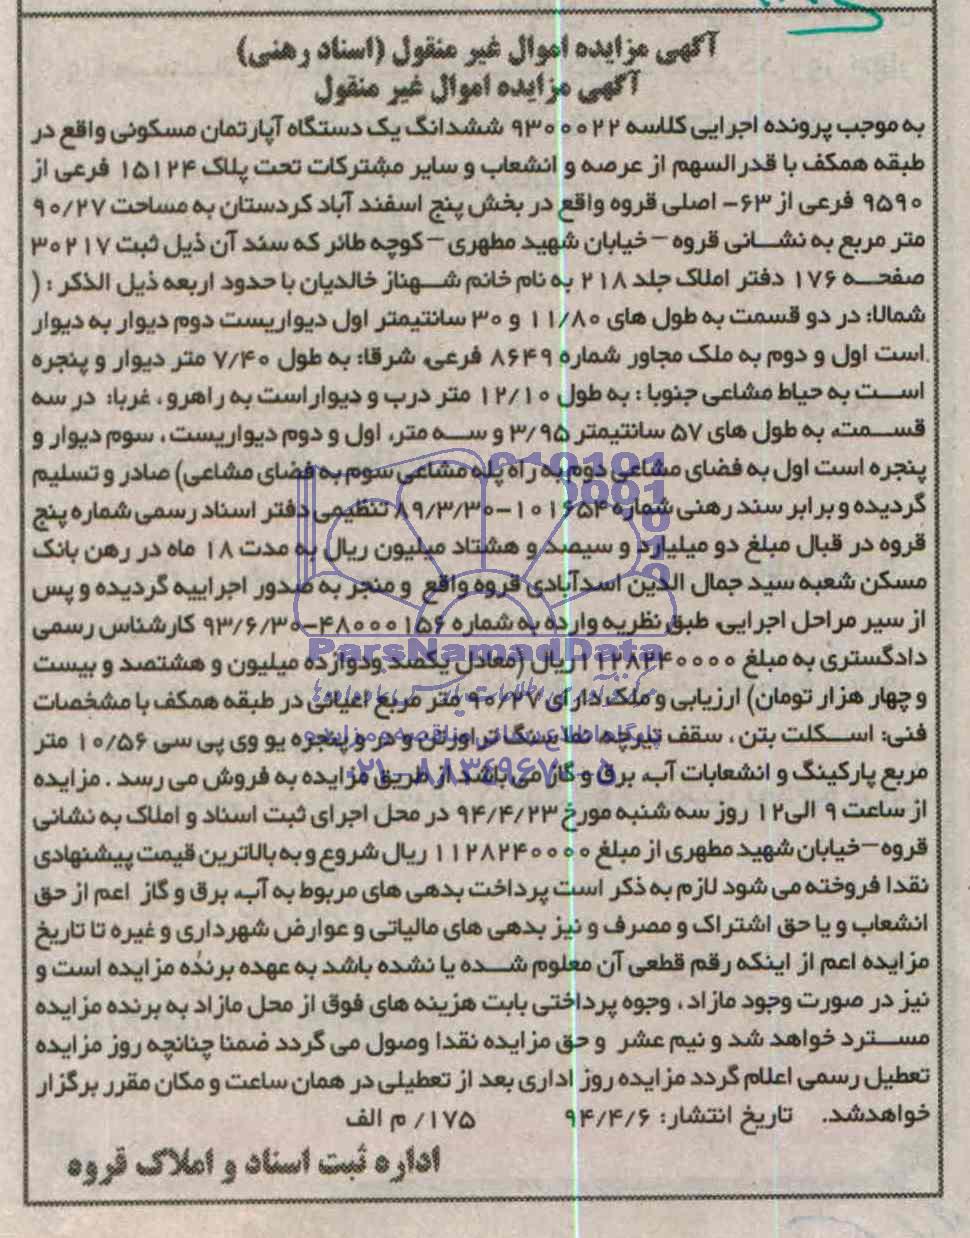 آگهی مزایده اموال غیر منقول (اسناد رهنی)
آگهی مزایده اموال غیر منقول
به موجب پرونده اجرایی کلاسه ۹۳۰۰۰۲۲ ششدانگ یک دستگاه آپارتمان مسکونی واقع در
طبقه همکف با قدرالسهم از عرصه و انشعاب و سایر مشترکات تحت پلاک ۱۵۱۲۴ فرعی از
۹۵۹۰ فرعی از ۶۳- اصلی قروه واقع در بخش پنج اسفند آباد کردستان به مساحت ۹۰/۲۷
متر مربع به نشانی قروه –خیابان شهید مطهری –کوچه طائر که سند آن ذیل ثبت ۳۰۲۱۷
صفحه ۱۷۶ دفتر املاک جلد ۲۱۸ به نام خانم شهناز خالدیان با حدود اربعه ذیل الذکر : (
شمالا: در دو قسمت به طول های ۱۱/۸۰ و ۳۰ سانتیمتر اول دیواریست دوم دیوار به دیوار
است اول و دوم به ملک مجاور شماره ۸۶۴۹ فرعی، شرقا: به طول ۷/۴۰ متر دیوار و پنجره
است به حیاط مشاعی جنوبا : به طول ۱۲/۱۰ متر درب و دیوار است به راهرو ، غربا: در سه
قسمت، به طول های ۵۷ سانتیمتر ۳/۹۵ و سه متر، اول و دوم دیواریست ، سوم دیوار و
پنجره است اول به فضای مشاعی دوم به راه پله مشاعی سوم به فضای مشاعی) صادر و تسلیم
گردیده و برابر سند رهنی شماره ۱۰۱۶۵۴-۸۹/۳/۳۰ تنظیمی دفتر اسناد رسمی شماره پنج
قروه در قبال مبلغ دو میلیارد و سیصد و هشتاد میلیون ریال به مدت ۱۸ ماه در رهن بانک
مسکن شعبه سید جمال الدین اسدآبادی قروه واقع و منجر به صدور اجراییه گردیده و پس
از سیر مراحل اجرایی، طبق نظریه وارده به شماره ۴۸۰۰۰۱۵۶-۹۳/۶/۳۰ کارشناس رسمی
ParsNamadData
دادگستری به مبلغ ۱۱۲۸۲۴۰۰۰۰ ریال (معادل یکصد ودوازده میلیون و هشتصد و بیست
و چهار هزار تومان) ارزیابی و ملک دارای ۹۰/۲۷ متر مربع اعیانی در طبقه همکف با مشخصات
فنی: اسکلت بتن ، سقف تیرچه، نما سنگ تراورتن و در و پنجره یو وی پی سی ۱۰/۵۶ متر
پایگاه اطلاع رسانی مناقصه و مزایده
مربع پارکینگ و انشعابات آب، برق و گاز می باشد از طریق مزایده به فروش می رسد . مزایده
۰۲۱-۸۸۳۴۹۶۷۰-۵
از ساعت ۹ الی۱۲ روز سه شنبه مورخ ۹۴/۴/۲۳ در محل اجرای ثبت اسناد و املاک به نشانی
قروه–خیابان شهید مطهری از مبلغ ۱۱۲۸۲۴۰۰۰۰ ریال شروع و به بالاترین قیمت پیشنهادی
نقدا فروخته می شود لازم به ذکر است پرداخت بدهی های مربوط به آب، برق و گاز اعم از حق
انشعاب و یا حق اشتراک و مصرف و نیز بدهی های مالیاتی و عوارض شهرداری و غیره تا تاریخ
مزایده اعم از اینکه رقم قطعی آن معلوم شده یا نشده باشد به عهده برنده مزایده است و
نیز در صورت وجود مازاد ، وجوه پرداختی بابت هزینه های فوق از محل مازاد به برنده مزایده
مسترد خواهد شد و نیم عشر و حق مزایده نقدا وصول می گردد ضمنا چنانچه روز مزایده
تعطیل رسمی اعلام گردد مزایده روز اداری بعد از تعطیلی در همان ساعت و مکان مقرر برگزار
خواهدشد. تاریخ انتشار: ۹۴/۴/۶ ۱۷۵/ م الف
اداره ثبت اسناد و املاک قروه